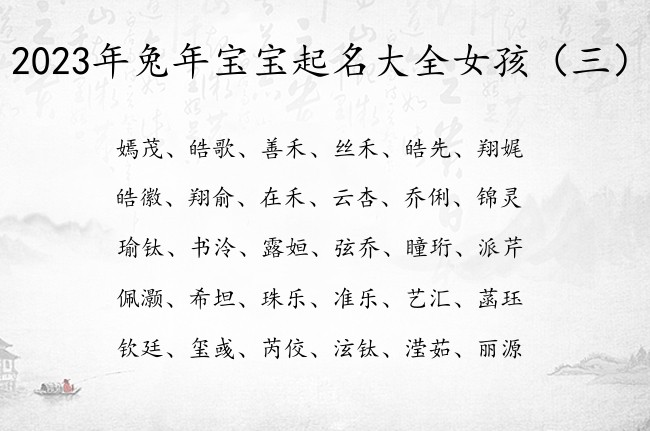 2023年兔年宝宝起名大全女孩（三）
嫣茂、皓歌、善禾、丝禾、皓先、翔娓
皓徽、翔俞、在禾、云杏、乔俐、锦灵
瑜钛、书泠、露姮、弦乔、瞳珩、派芹
佩灏、希坦、珠乐、准乐、艺汇、菡珏
钦廷、玺彧、芮佼、泫钛、滢茹、丽源